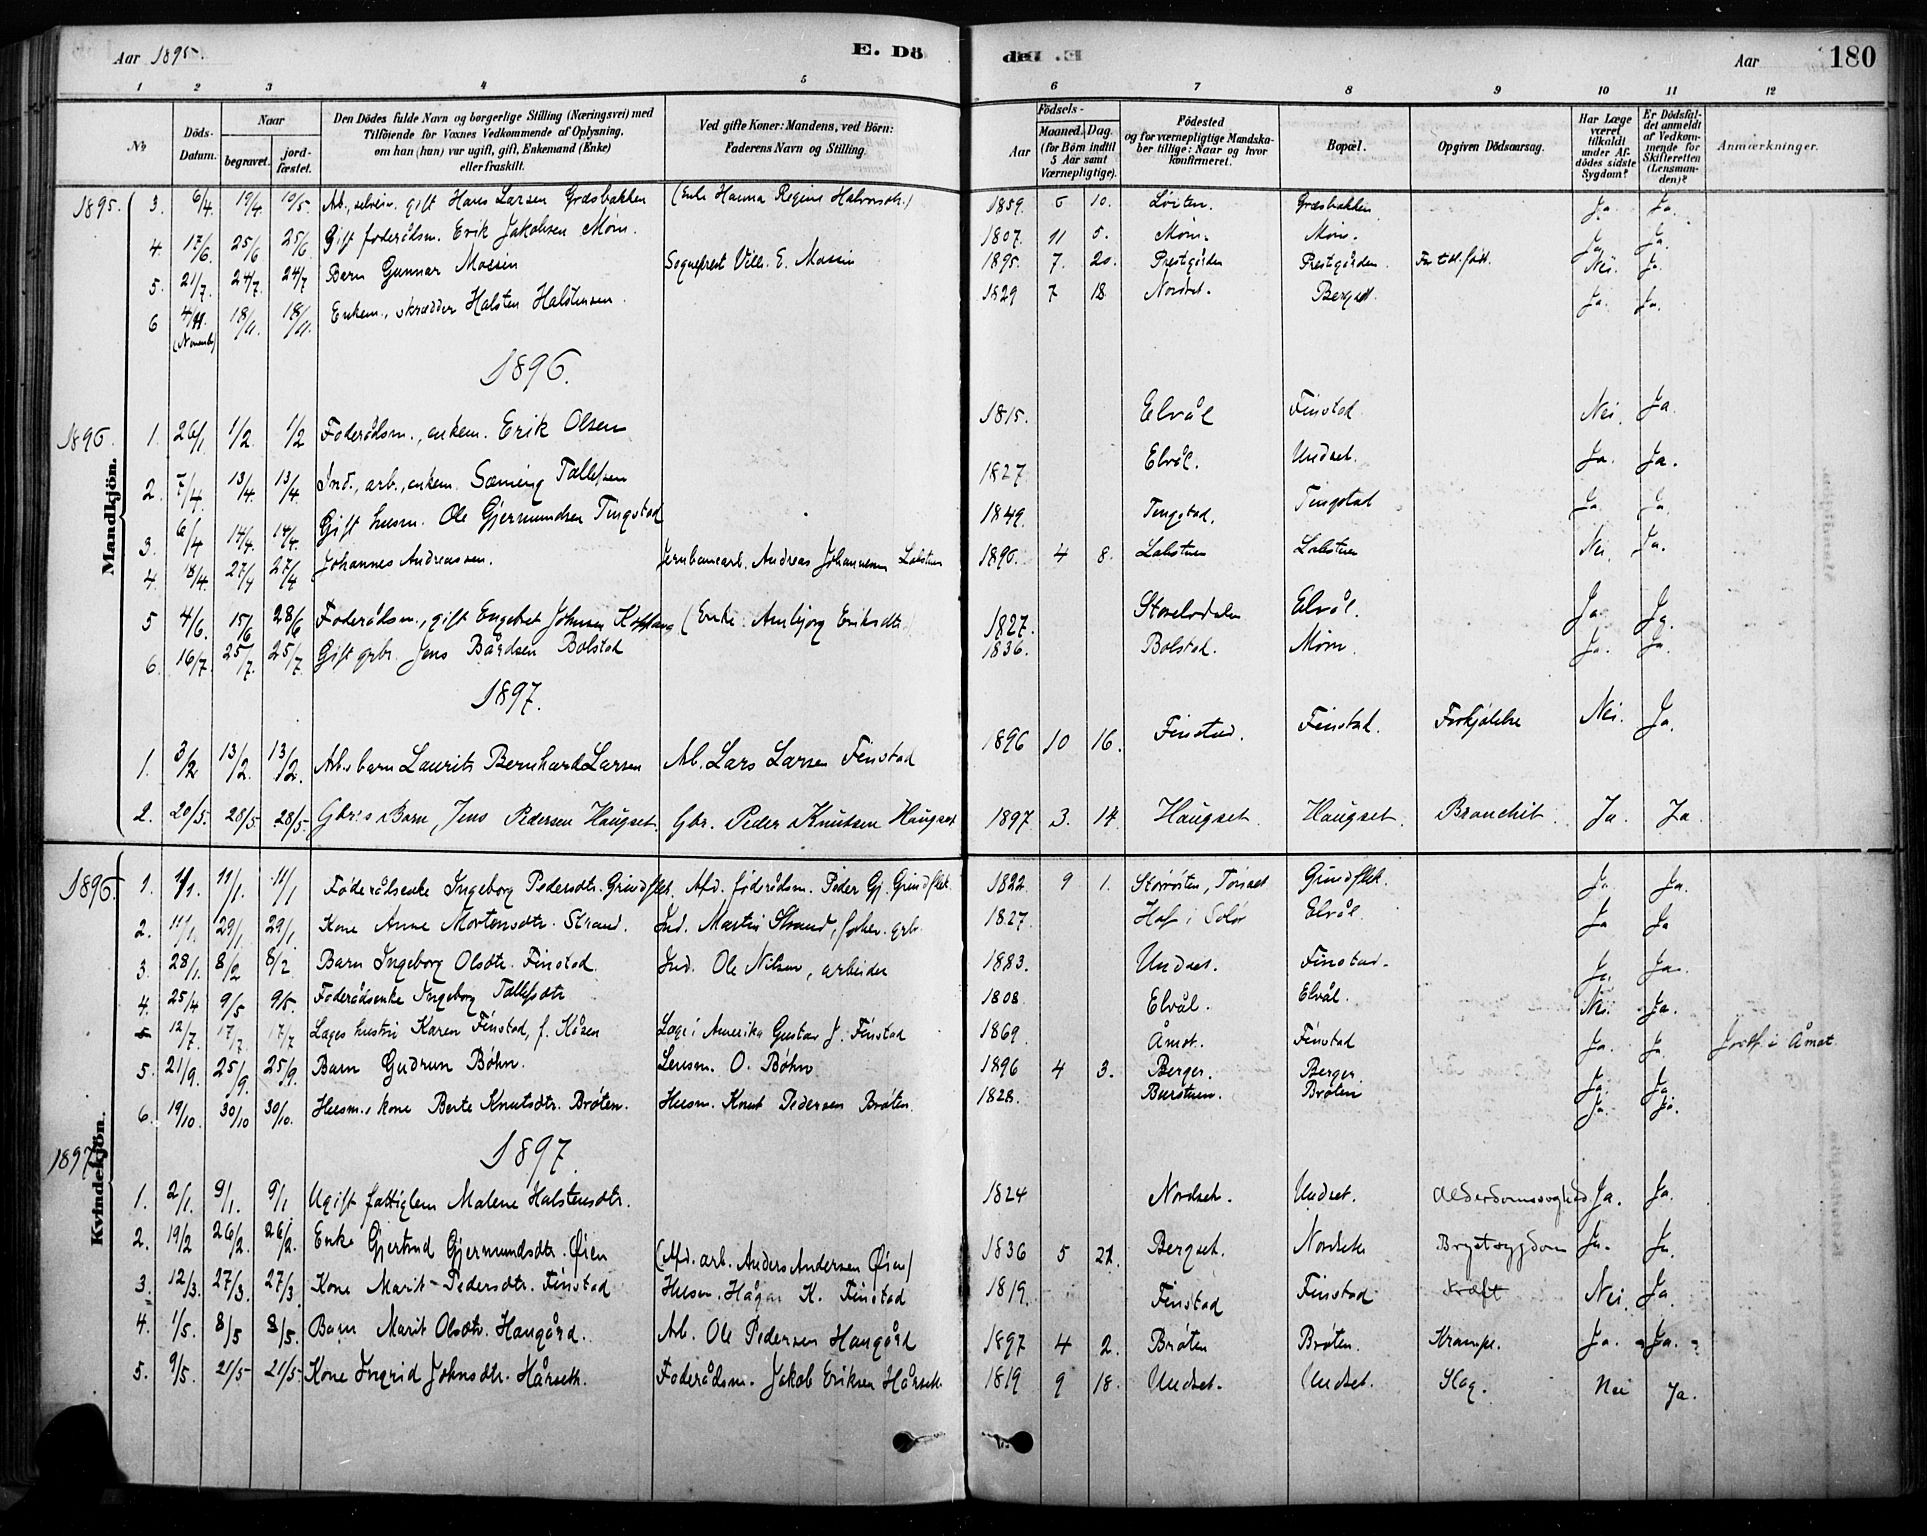 Aar 1895. E. Dö
den E. Aar 180
1 2 3 4 5 6 7 8 9 10 11 12
No
Döds-Datum.
Naar begravet. jordfæstet.
Den Dödes fulde Navn og borgerlige Stilling (Næringsvei) med Tilföiende for Voxnes Vedkommende af Oplysning, om han (hun) var ugift, gift, Enkemand (Enke) eller fraskilt.
Ved gifte Koner: Mandens, ved Börn: Faderens Navn og Stilling.
Födsels- Aar Maaned. Dag. (for Börn indtil 5 Aar samt Værnepligtige).
Födested og for værnepligtige Mandskaber tillige: Naar og hvor konfirmeret.
Bopæl.
Opgiven Dödsaarsag.
Har Læge været tilkaldt under Afdödes sidste Sygdom?
Er Dödsfaldet anmeldt af Vedkommende for Skifteretten (Lensmanden)?
Anmærkninger.
Mandkjön.
1895. 3. 6/4. 19/4. 10/5. Arb., selveier, gift Hans Larsen Græsbakken (Enke Hanna Regine Halvorsdtr.) 1859. 6 10. Löiten. Græsbakken Ja. Ja.
4 17/6. 25/6 25/6. Gift foderådsm. Erik Jakobsen Morn. 1807. 11 5. Morn. Morn. Ja Ja.
5. 21/7. 24/7. 24/7 Barn Gunnar Mossin Sogneprest Vill. E. Mossin 1895. 7. 20. Prestgården Prestgården. For tidl. född. Nei. Ja.
6 4/11. (Novembr) 18/11. 18/11. Enkem., skrædder Halsten Halstensen. 1829 7 18. Nordset. Bergset. Ja. Ja.
1896.
1896. 1. 26/1 1/2. 1/2 Foderådsm., enkem. Erik Olsen 1815. Elvål Finstad. Nei. Ja.
2. 7/4. 13/4. 13/4. Ind., arb., enkem. Sæming Tallefsen 1827. Elvål. Undset. Ja. Ja.
3. 6/4 14/4. 14/4. Gift husm. Ole Gjermundsen Tingstad 1849. Tingstad. Tingstad Ja Ja
4. 18/4. 27/4 27/4 Johannes Andreassen. Jernbanearb. Andreas Johannesen 1896. 4 8. Nei. Ja.
5 4/6. 15/6 28/6 Foderådsm., gift Engebret Johnsen Koppang (Enke: Anbjörg Eriksdtr.) 1827. Storelvdalen Elvål. Ja. Ja.
6. 16/7. 25/7. 25/7. Gift gbr. Jens Bårdsen Bolstad 1836. Bolstad. Morn. Ja. Ja.
1897.
1. 3/2. 13/2. 13/2. Arb.s barn Laurits Bernhard Larsen Arb. Lars Larsen Finstad 1896 10 16. Finstad. Finstad. Forkjölelse Nei. Ja.
2. 20/5. 28/5. 28/5. Gbr.s Barn, Jens Pedersen Haugset. Gbr. Peder Knutsen Haugset 1897 3. 14. Haugset. Haugset. Bronchit. Ja. Ja.
Kvindekjön.
1896. 1. 1/1. 11/1. 11/1 Foderådsenke Ingeborg Pedersdtr. Grindflek. Afd. föderådsm. Peder Gj. Grindflek. 1822. 9 1. Tönset Grindflek. Ja. Ja.
2. 11/1. 29/1. 29/1. Kone Anne Mortensdtr. Strand. Ind. Martin Strand, forhev. gbr. 1827. Hof i Solör Elvål. Ja Ja
3. 28/1. 8/2 8/2. Barn Ingeborg Olsdtr. Finstad. Ind. Ole Nilsen, arbeider 1883. Undset. Finstad. Ja. Ja.
4. 25/4 9/5 9/5. Foderådsenke Ingeborg Tallefsdtr 1808. Elvål. Elvål. Nei. Ja.
5 12/7. 17/7. 17/7 Læges hustru Karen Finstad, f. Kåsen Læge i Amerika Gustav J. Finstad 1869. Åmot. Finstad Ja. Ja. Jordf. i Åmot.
5. 21/9. 25/9. 25/9. Barn Gudrun Bøhn. Lensm. O. Bøhn 1896 4 3. Berger. Berger Ja. Ja
6. 19/10. 30/10 30/10. Husm.s kone Berte Knutsdtr. Brøten. Husm. Knut Pedersen Brøten. 1828. Burstuen. Brøten Ja. Ja.
1897.
1897 1. 2/1. 9/1. 9/1 Ugift fattiglem Malene Halstensdtr. 1824 Nordset. Undset. Alderdomssvaghed Ja. Ja.
2. 19/2 26/2. 26/2. Enke Gjertrud Gjermundsdtr. Øien (Afd. arb. Anders Andersen Øien) 1836 5 21. Bergset. Nordset. Brystsygdom Ja. Ja.
3. 12/3. 27/3. 27/3 Kone Marit Pedersdtr. Finstad Husm. Hågen K. Finstad 1819. Finstad Finstad Kræft Nei. Ja.
4. 1/5. 8/5 8/5. Barn Marit Olsdtr. Haugård. Arb. Ole Pedersen Haugård 1897 4 2. Brøten Brøten. Krampe. Ja. Ja.
5. 9/5. 21/5 21/5 Kone Ingrid Johnsdtr. Hårseth. Foderådsm. Jakob Eriksen Hårseth 1819 9 18. Undset. Undset. Slag. Nei Ja.